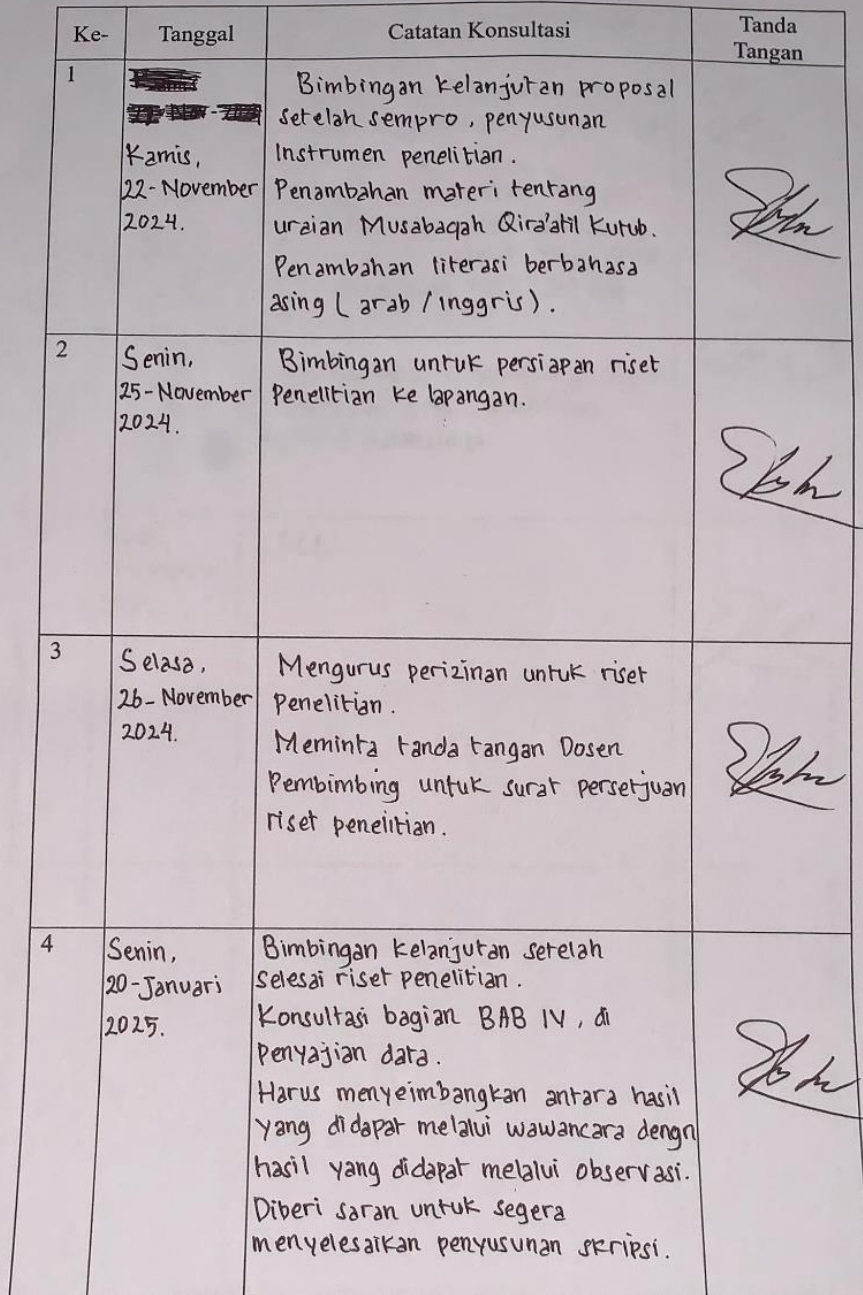 Ke- Tanggal Catatan Konsultasi Tanda
Tangan
1
Kamis,
22-November
2024.
Bimbingan kelanjutan proposal
setelah sempro, penyusunan
Instrumen penelitian.
Penambahan materi tentang
uraian Musabaqah Qira'atil Kutub.
Penambahan literasi berbahasa
asing (arab / inggris).
2
Senin,
25-November
2024.
Bimbingan untuk persiapan riset
Penelitian ke lapangan.
3
Selasa,
26-November
2024.
Mengurus perizinan untuk riset
Penelitian.
Meminta tanda tangan Dosen
Pembimbing untuk surat persetjuan
riset peneiitian.
4
Senin,
20-Januari
2025.
Bimbingan kelanjutan setelah
selesai riset penelitian.
Konsultasi bagian BAB IV, di
penyajian data.
Harus menyeimbangkan antara hasil
yang didapat melalui wawancara dengn
hasil yang didapat melalui observasi.
Diberi saran untuk segera
menyelesaikan penyusunan skripsi.